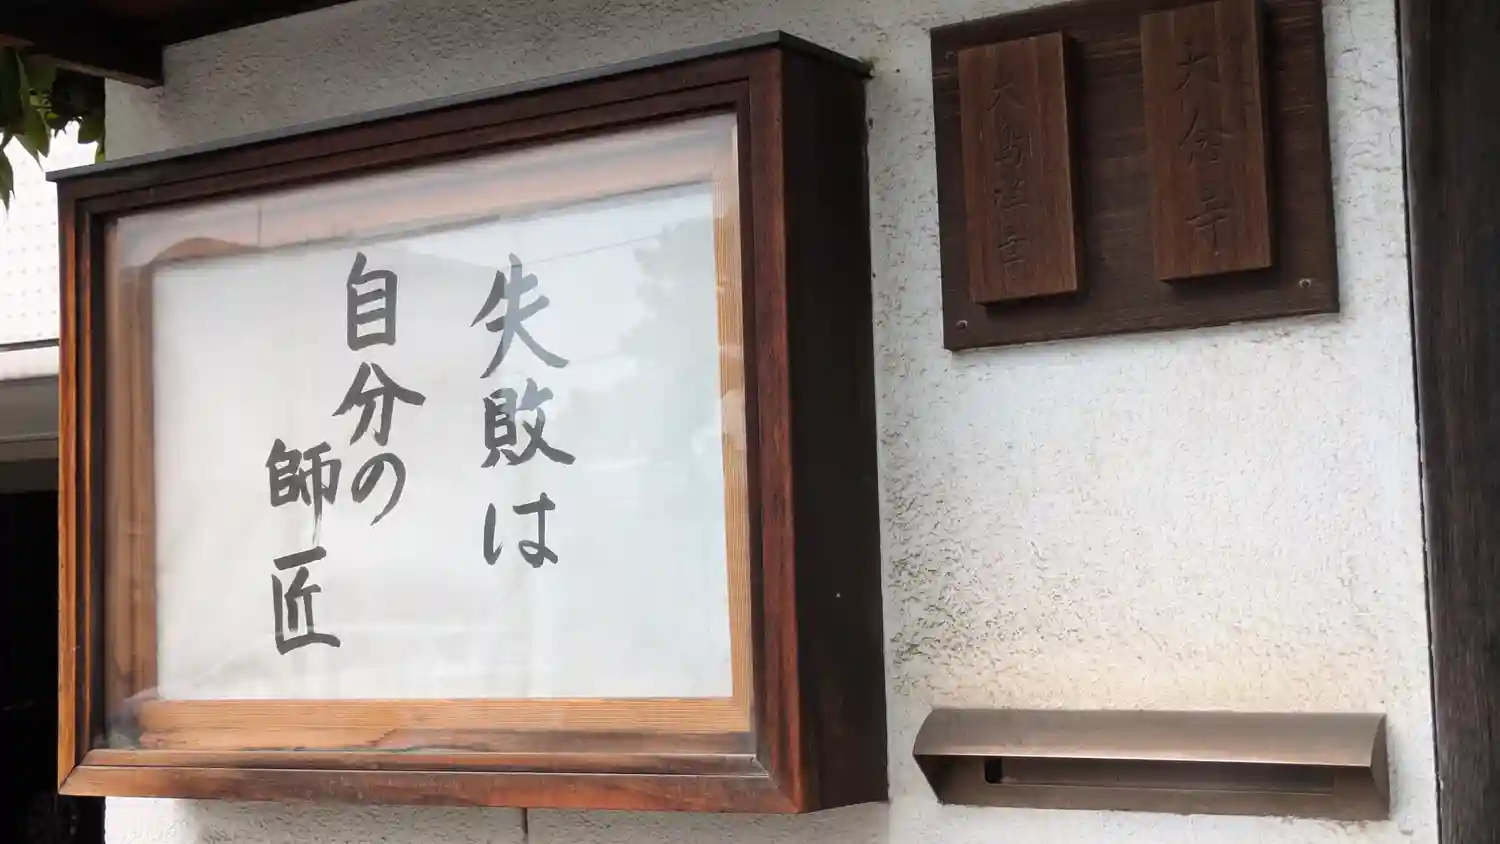 失敗は
自分の
師匠
大念寺
大島